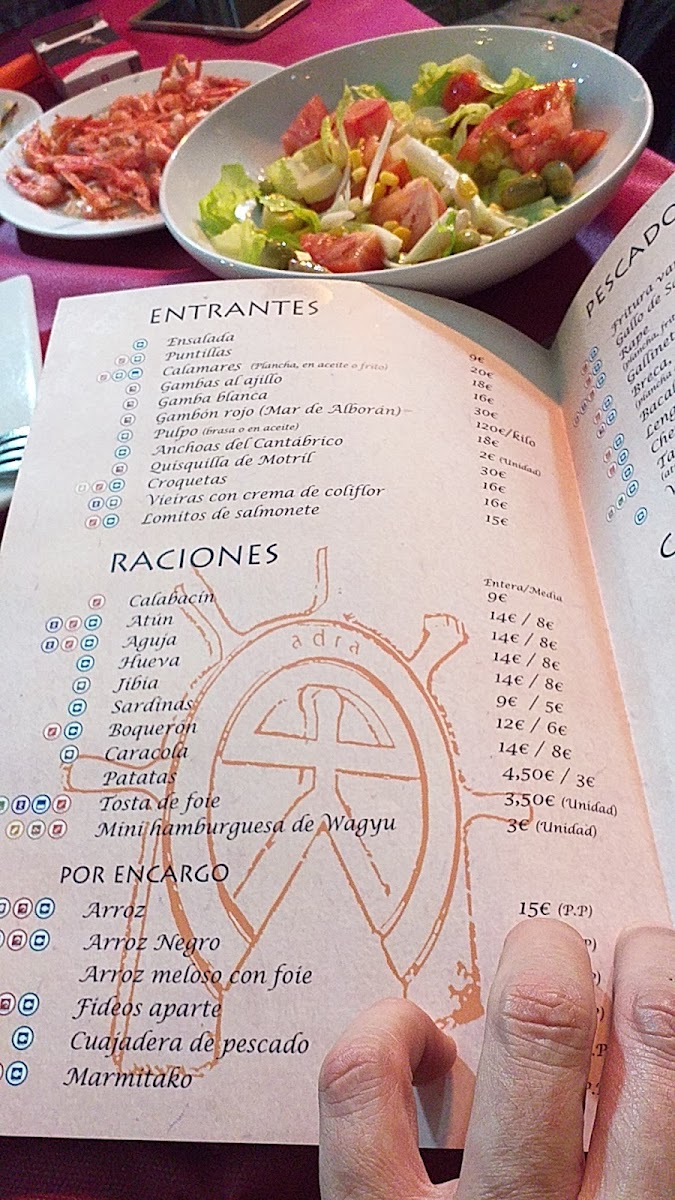 ENTRANTES
Ensalada 9€
Puntillas 20€
Calamares (Plancha, en aceite o frito) 18€
Gambas al ajillo 16€
Gamba blanca 30€
Gambón rojo (Mar de Alborán) 120€/kilo
Pulpo (brasa o en aceite) 18€
Anchoas del Cantábrico 2€ (Unidad)
Quisquilla de Motril 30€
Croquetas 16€
Vieiras con crema de coliflor 16€
Lomitos de salmonete 15€
RACIONES
Entera/Media
Calabacín 9€
Atún 14€ / 8€
Aguja 14€ / 8€
Hueva 14€ / 8€
Jibia 14€ / 8€
Sardinas 9€ / 5€
Boquerón 12€ / 6€
Caracola 14€ / 8€
Patatas 4,50€ / 3€
Tosta de foie 3,50€ (Unidad)
Mini hamburguesa de Wagyu 3€ (Unidad)
adra
POR ENCARGO
Arroz 15€ (P.P)
Arroz Negro
Arroz meloso con foie
Fideos aparte
Cuajadera de pescado
Marmitako
PESCADO
Fritura
Gallo de
Rape
(plancha,
Gallinet
Breca,
(plancha